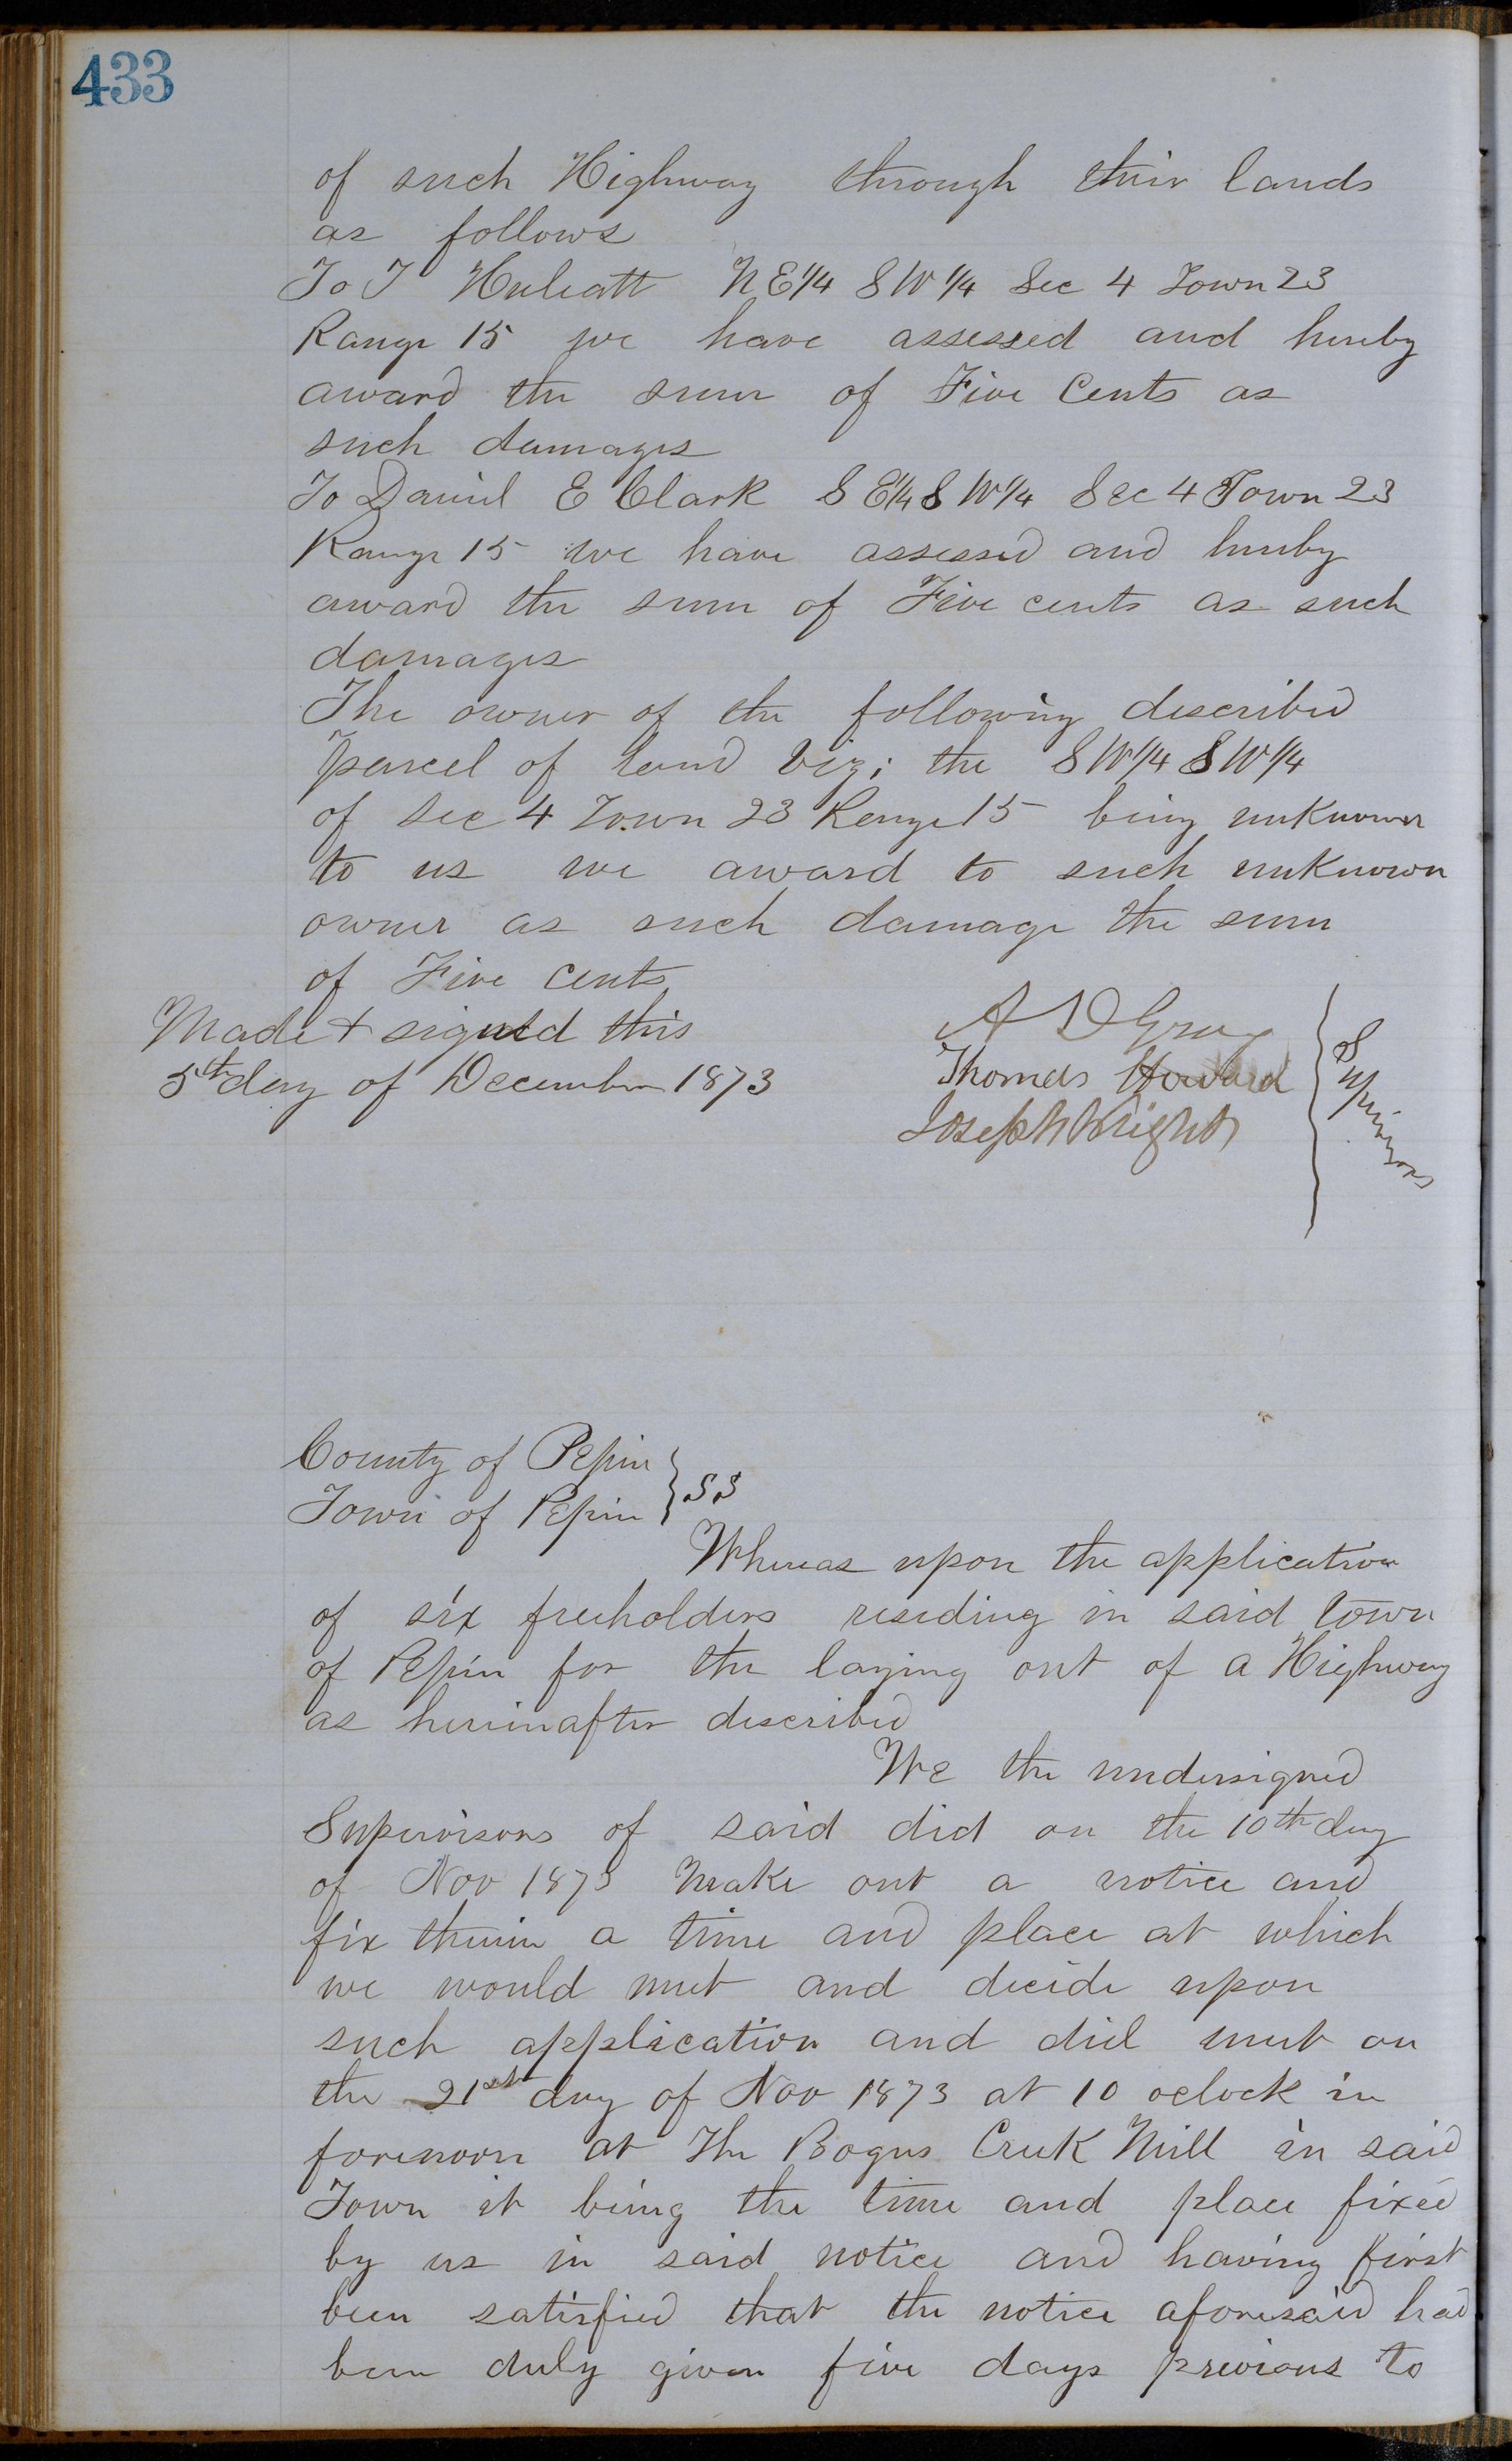 433
of such Highway through their lands
as follows
To T Hulcatt N E 1/4 S W 1/4 Sec 4 Town 23
Range 15 we have assessed and hereby
award the sum of Five Cents as
such damages
To Daniel E Clark S E 1/4 S W 1/4 Sec 4 Town 23
Range 15 we have assessed and hereby
award the sum of Five cents as such
damages
The owner of the following described
parcel of land viz; the S W 1/4 S W 1/4
of Sec 4 Town 23 Range 15 being unknown
to us we award to such unknown
owner as such damage the sum
of Five cents
Made + signed this
5th day of December 1873
A D Gray
Thomas Howard
Joseph Wright
Supervisors
County of Pepin
Town of Pepin } S.S
Whereas upon the application
of six freeholders residing in said town
of Pepin for the laying out of a Highway
as hereinafter described
We the undersigned
Supervisors of said did on the 10th day
of Nov 1873 make out a notice and
fix therein a time and place at which
we would meet and decide upon
such application and did meet on
the 21st day of Nov 1873 at 10 oclock in
forenoon at The Bogus Creek Mill in said
Town it being the time and place fixed
by us in said notice and having first
been satisfied that the notice aforesaid had
been duly given five days previous to